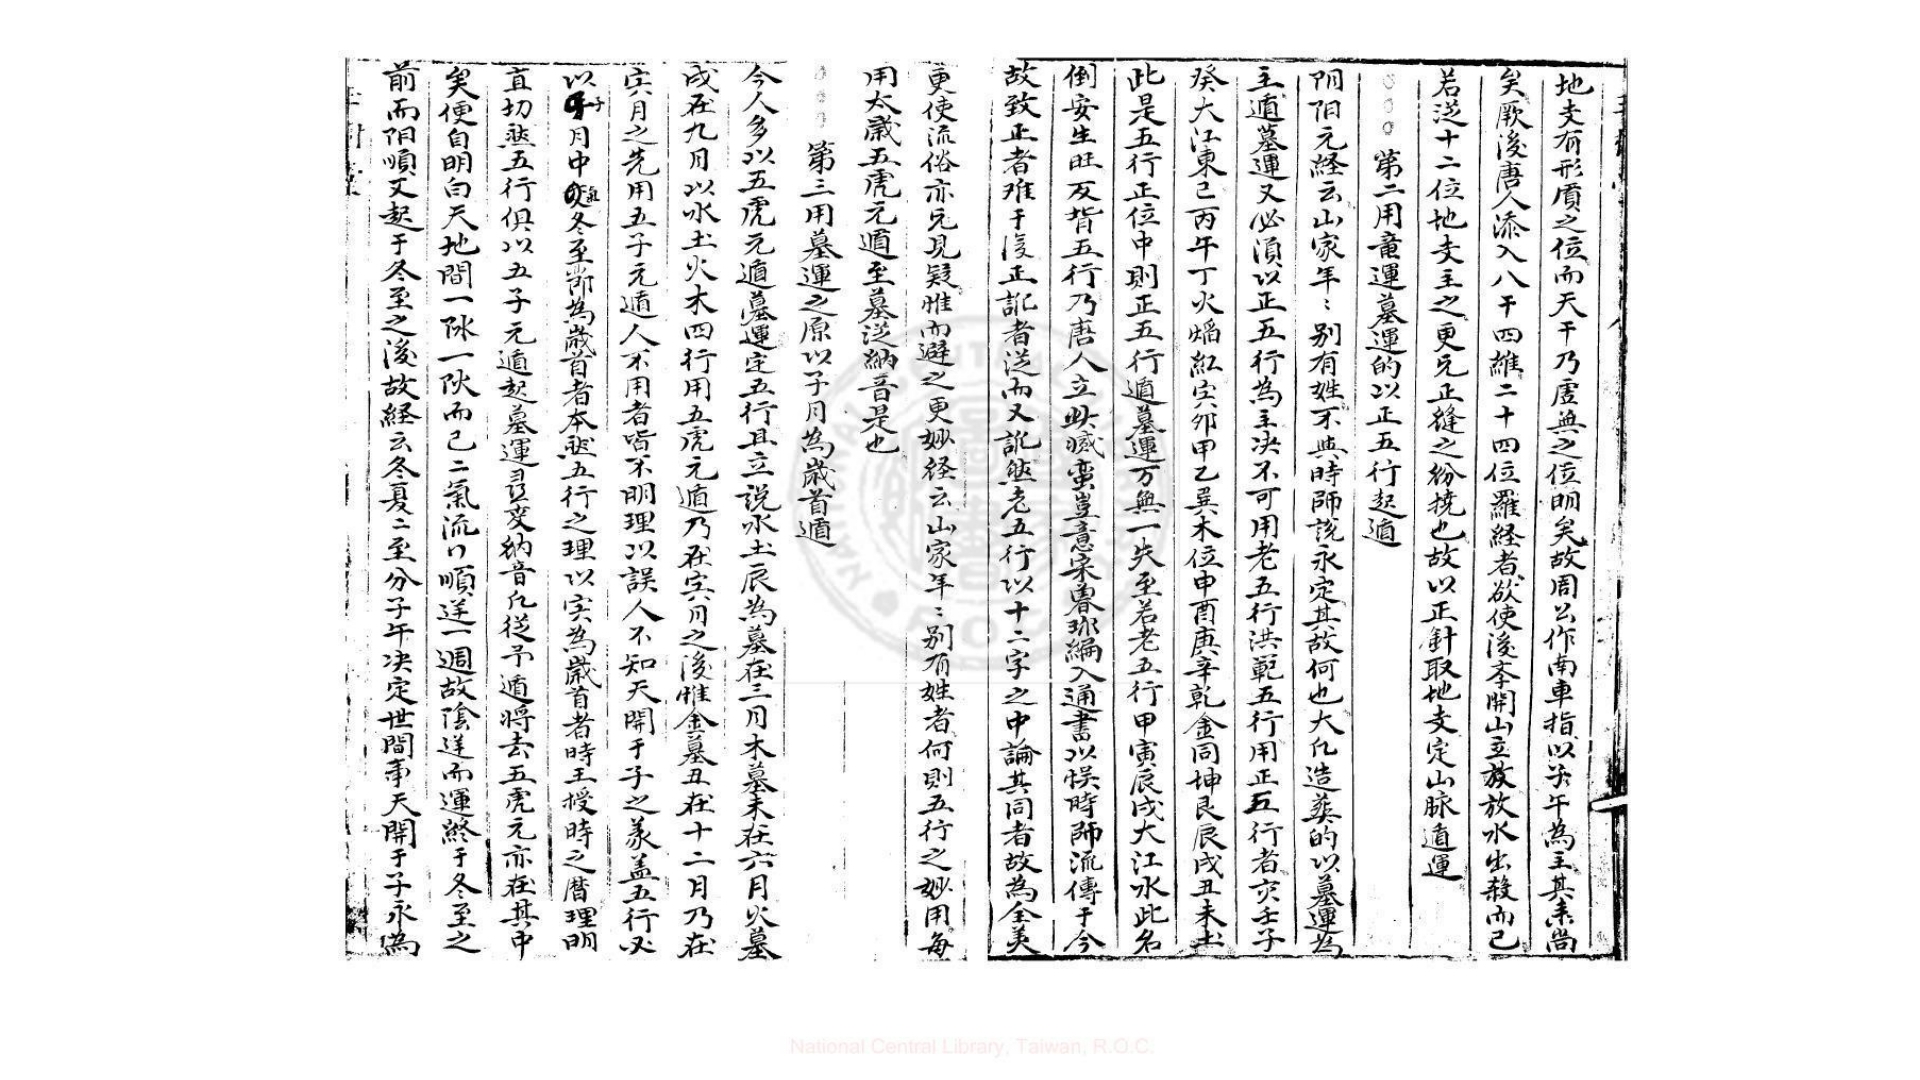 地支有形質之位而天干乃虛無之位明矣故周公作南車指以子午為主其来尚
矣厥後唐人添入八干四維二十四位羅経者欲使後李開山立放放水出殺而已
若逆十二位地支主之更兄正縫之紛撓也故以正針取地支定山脉遁運
○○○第二用竜運墓運的以正五行起遁
阴阳元経云山家年〻别有姓不與時師説永定其故何也大凡造葬的以墓運為
主遁墓運又必湏以正五行為主决不可用老五行洪範五行用正五行者亥壬子
癸大江東巳丙午丁火焰紅寅夘甲乙巽木位申酉庚辛乾金同坤艮辰戌丑未土
此是五行正位中則正五行遁墓運万無一失至若老五行甲寅辰戌大江水此名
倒安生旺反背五行乃唐人立此㓕蛮豈意宋魯珎編入通書以悞時師流傳于今
故致正者难于復正訛者逆而又訛然老五行以十二字之中論其同者故為全美
更使流俗亦兄見疑惟而避之更妙経云山家年〻别有姓者何則五行之妙用每
用太歲五虎元遁至墓逆納音是也
○○○第三用墓運之原以子月為歲首遁
今人多以五虎元遁墓運定五行且立説水土辰為墓在三月木墓未在六月火墓
戌在九月以水土火木四行用五虎元遁乃在寅月之後惟金墓丑在十二月乃在
寅月之先用五子元遁人不用者皆不明理以誤人不知天開于子之義盖五行必
以子月中氣冬至節為歲首者本然五行之理以寅為歲首者時王授時之暦理明
直切然五行俱以五子元遁起墓運
変納音凡従子遁將去五虎元亦在其中
矣便自明白天地間一阥一阦而已二氣流行順逆一週故陰逆而運終于冬至之
前而阳順又起于冬至之後故経云冬夏二至分子午决定世間事天開于子永為
National Central Library, Taiwan, R.O.C.